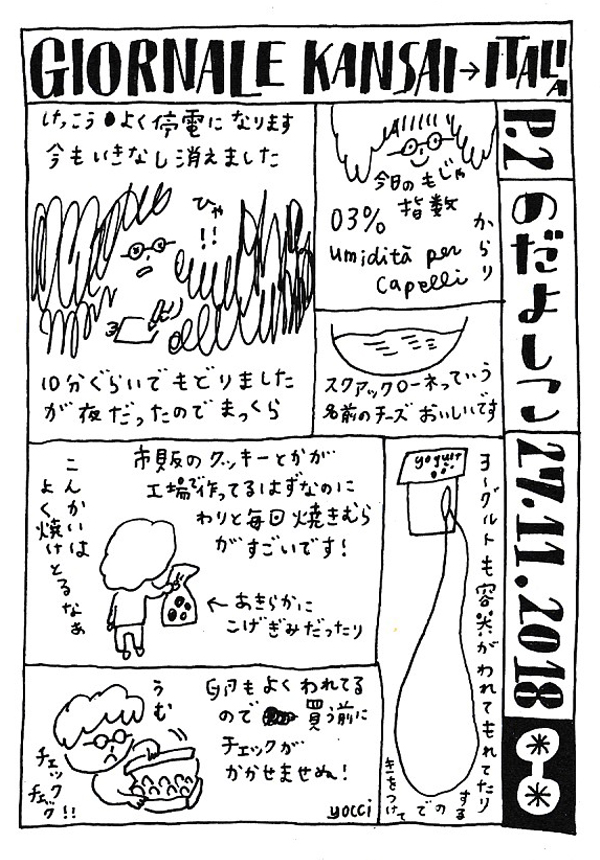 GIORNALE KANSAI→ITALIA
P.2
のだよしこ
27.11.2018
けっこうよく停電になります
今もいきなし消えました
ひゃ!!
10分ぐらいでもどりました
が夜だったのでまっくら
今日のもじゃ
指数
03%
からり
umidità per
Capelli
スクアックローネっていう
名前のチーズおいしいです
市販のクッキーとかが
工場で作ってるはずなのに
わりと毎回焼きむら
がすごいです!
こんかいは
よく焼けとるなあ
←あきらかに
こげぎみだったり
yogurt
ヨーグルトも容器がわれてもれてたり
するのできをつけて
卵もよくわれてる
ので買う前に
チェックが
かかせませぬ!
うむ
チェック
チェック!!
yocci